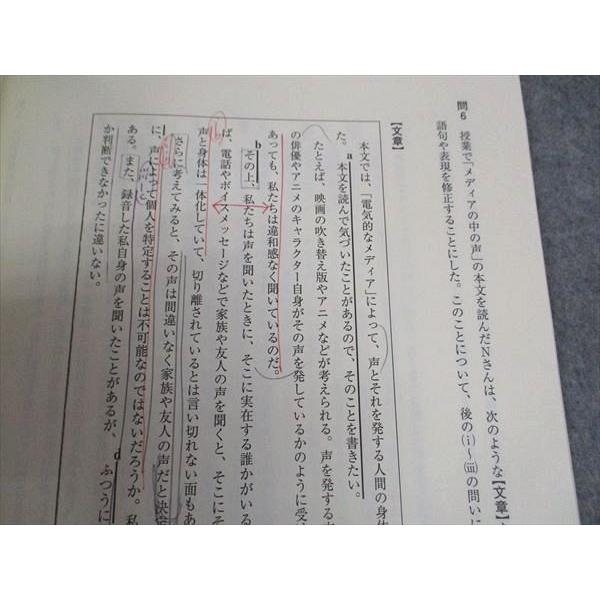 問6 授業で「メディアの中の声」の本文を読んだNさんは、次のような【文章】
語句や表現を修正することにした。このことについて、後の(ⅰ)~(ⅲ)の問いに
【文章】
本文では、「電気的なメディア」によって、声とそれを発する人間の身体
た。a本文を読んで気づいたことがあるので、そのことを書きたい。
たとえば、映画の吹き替え版やアニメなどが考えられる。声を発する
の俳優やアニメのキャラクター自身がその声を発しているかのように受
あっても、私たちは違和感なく聞いているのだ。
bその上、私たちは声を聞いたときに、そこに実在する誰かがいる
ば、電話やボイスメッセージなどで家族や友人の声を聞くと、そこにそ
声と身体は一体化していて、切り離されているとは言い切れない面もあ
さらに考えてみると、その声は間違いなく家族や友人の声だと決
に、声によって個人を特定することは不可能なのではないだろうか。私
ある。また、録音した私自身の声を聞いたことがあるが、dふつうに
か判断できなかったに違いない。